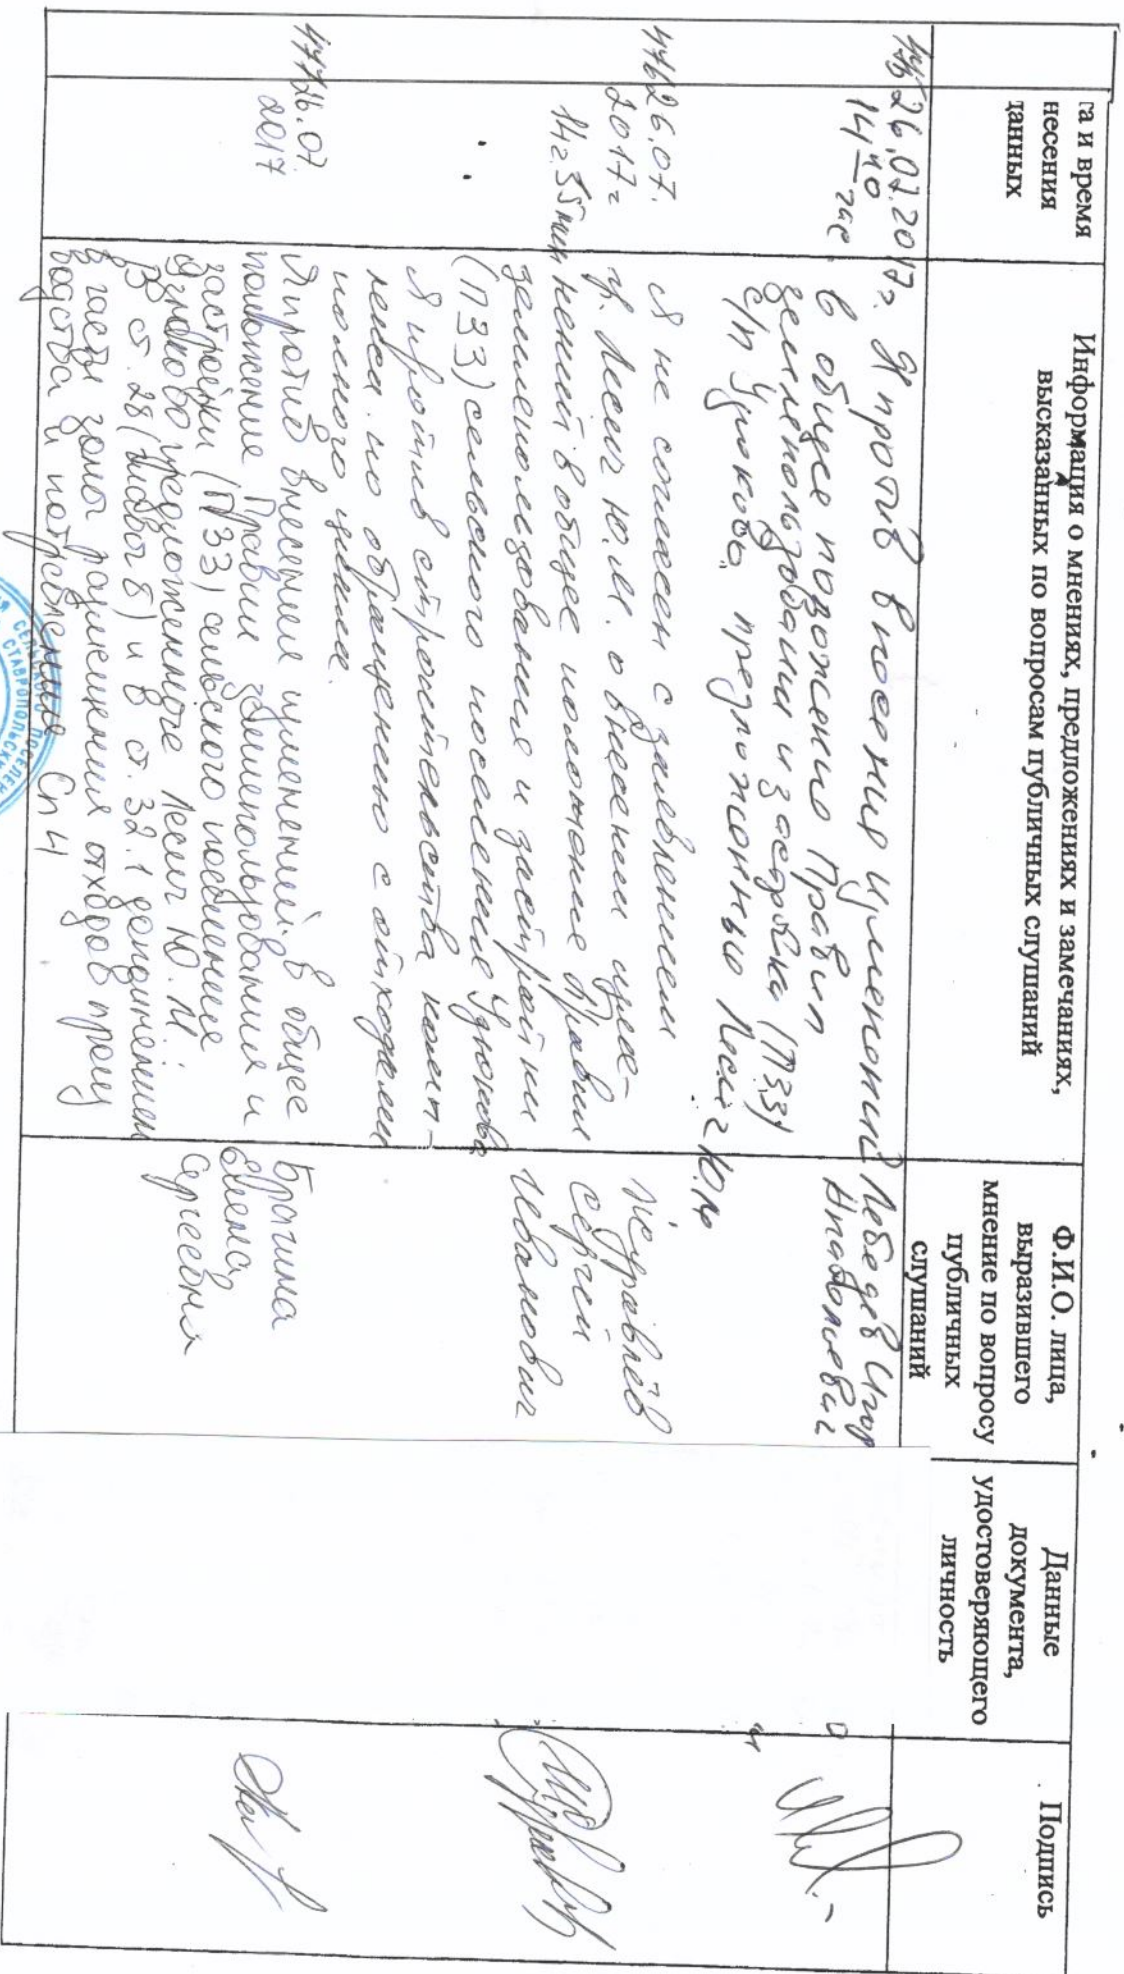 та и время
несения
данных
Информация о мнениях, предложениях и замечаниях,
высказанных по вопросам публичных слушаний
Ф.И.О. лица,
выразившего
мнение по вопросу
публичных
слушаний
Данные
документа,
удостоверяющего
личность
Подпись
26.07.2017г.
14 40 час
Я против внесения изменений
в общее положению Правил
земленользования и застройка (ПЗЗ)
с/п Узюково, предложенные Лесиг Ю.М.
Лебедев Игор
476
26.07.
2017г
14г.35мин
Я не согласен с заявлением
гр. Лесиг Ю.М. о внесении изме-
нений в общее положение Правил
землепользования и застройки
(ПЗЗ) сельского поселение Узюково
Я против строительства комп-
лекса по обращению с отходами
полного цикла.
Журавлёв
Сергей
Иванович
477
26.07.
2017
Я против внесения изменений в общее
положение Правил землепользования и
застройки (ПЗЗ) сельского поселения
Узюково предложенные Лесиг Ю.М.
В ст. 28 (главы 8) и в ст. 32.1 дополнением
в части зоны размещения отходов произ
водства и потребление Сп4
Елена
Сергеевна